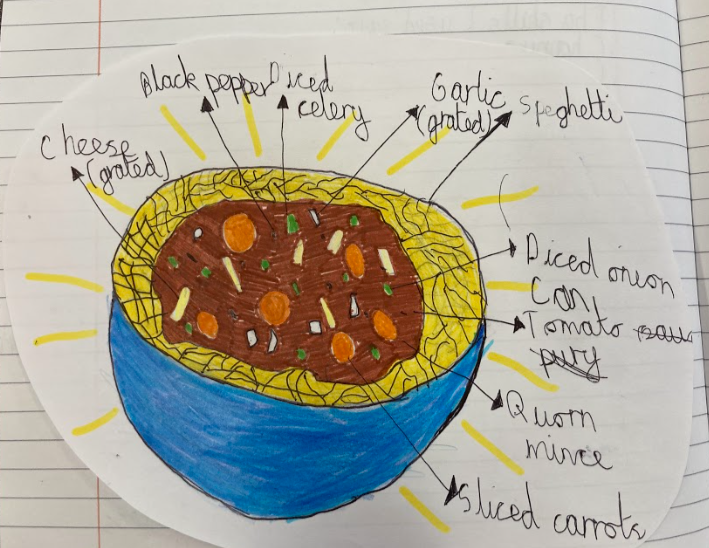 Black pepper
Diced
celery
Garlic
(grated)
Speghetti
Cheese
(grated)
Diced onion
Can
Tomato
pury
Quorn
mince
Sliced carrots